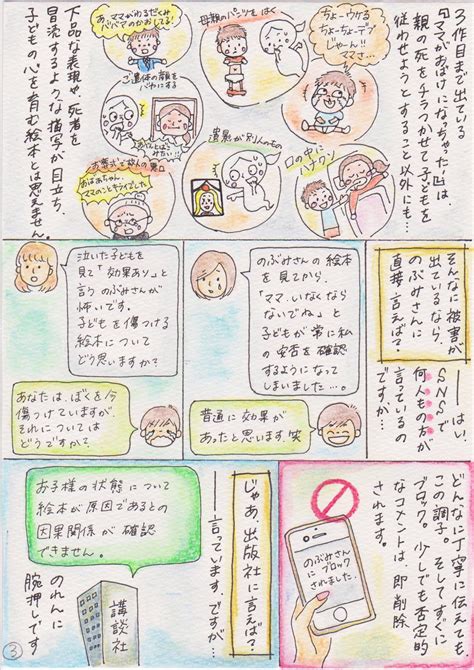 3作目まで出ている
『ママがおばけになっちゃった!』は、
親の死をチラつかせて子どもを
従わせようとすること以外にも…
ちょーウケる
ちょーちょーデブ
じゃーん!!
ママさ…
母親のパンツをはく
ママがわるだくみ
パパでのかおしてる!
ご遺体の顔を
バカにする
口の中にハナクソ
遺影が別人のもの
お葬式で故人の悪口
おばあちゃん、
ママのことキライでした
下品な表現や、死者を
冒涜するような描写が目立ち、
子どもの心を育む絵本とは思えません。
そんなに被害が
出ているなら、
のぶみさんに
直接言えば?
──はい
SNSで
何人もの方が
言っているの
ですが…
のぶみさんの絵本
を見てから、
「ママ、いなくなら
ないでね」と
子どもが常に私
の安否を確認
するようになって
しまいました…。
普通に効果が
あったと思います。笑
泣いた子どもを
見て「効果あり。」と
言うのぶみさんが
怖いです。
子どもを傷つける
絵本について
どう思いますか?
あなたは、ぼくを今
傷つけていますが、
それについては
どうですか?
どんなに丁寧に伝えても
この調子。そしてすぐに
ブロック。少しでも否定的
なコメントは、即削除
されます。
のぶみさん
にブロック
されました。
じゃあ、出版社に言えば?
言っています、ですが…
お子様の状態について
絵本が原因であるとの
因果関係が確認
できません。
講談社
のれんに
腕押しです
3